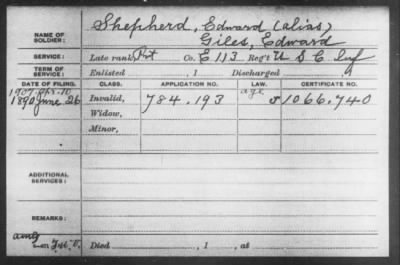 NAME OF SOLDIER: Shepherd, Edward (alias)
Giles, Edward
SERVICE: Late rank Pvt Co. E 113 Reg't U S C Inf
TERM OF SERVICE: Enlisted , 1 Discharged , 1
DATE OF FILING. CLASS. APPLICATION NO. LAW. CERTIFICATE NO.
1907. Apr. 10 age
1890 June 26 Invalid, 784.193 1066.740
Widow,
Minor,
ADDITIONAL SERVICES:
REMARKS:
Died , 1 , at